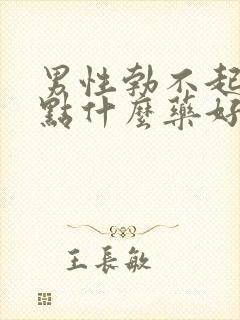 男性勃不起
點什麼藥好
王長敏